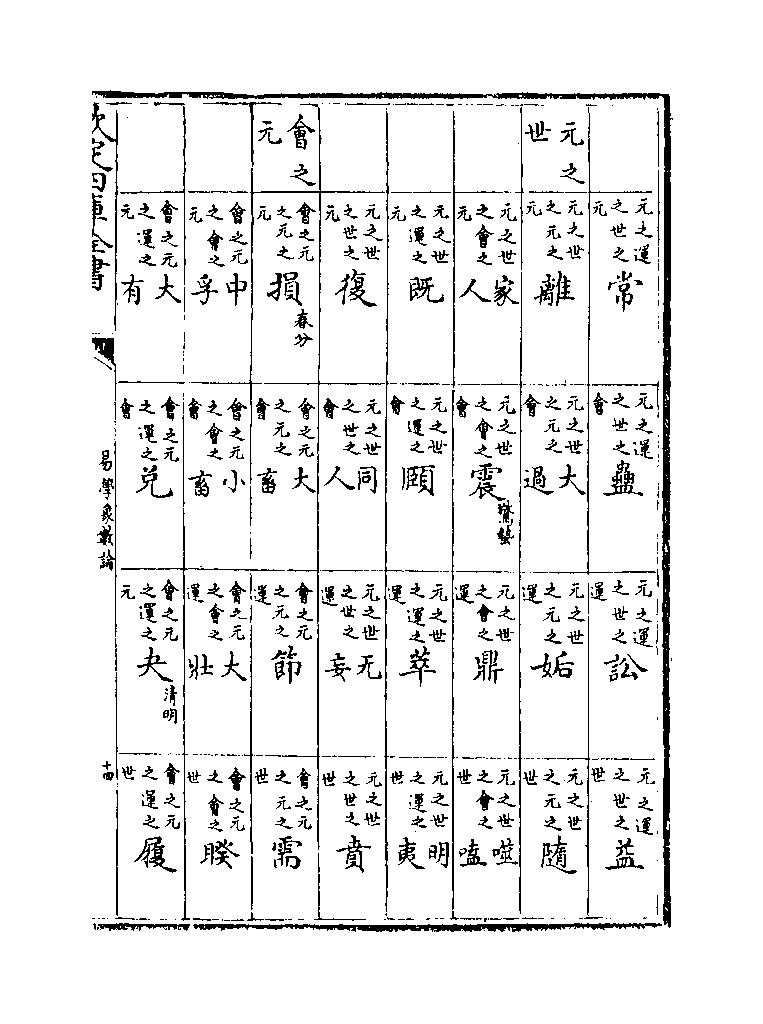 元之運之世之元常
元之運之世之會蠱
元之運之世之運訟
元之運之世之世益
元之世
元之世之元之元離
元之世之元之會大過
元之世之元之運姤
元之世之元之世隨
元之世之會之元家人
元之世之會之會震驚蟄
元之世之會之運鼎
元之世之會之世噬嗑
元之世之運之元既
元之世之運之會頤
元之世之運之運萃
元之世之運之世明夷
元之世之世之元復
元之世之世之會同人
元之世之世之運无妄
元之世之世之世賁
會之元
會之元之元之元損春分
會之元之元之會大畜
會之元之元之運節
會之元之元之世需
會之元之會之元中孚
會之元之會之會小畜
會之元之會之運大壯
會之元之會之世睽
會之元之運之元大有
會之元之運之會兌
會之元之運之元夬清明
會之元之運之世履
欽定四庫全書
易學象數論
十四